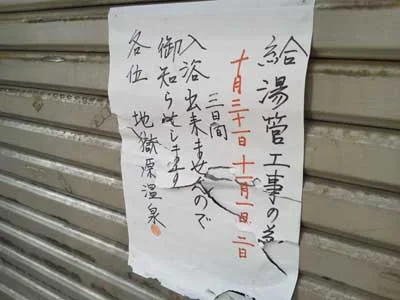 給湯管工事の為
十月三十一日 十一月一日、二日
三日間
入浴出来ませんので
御知らせします
各位 地獄原温泉